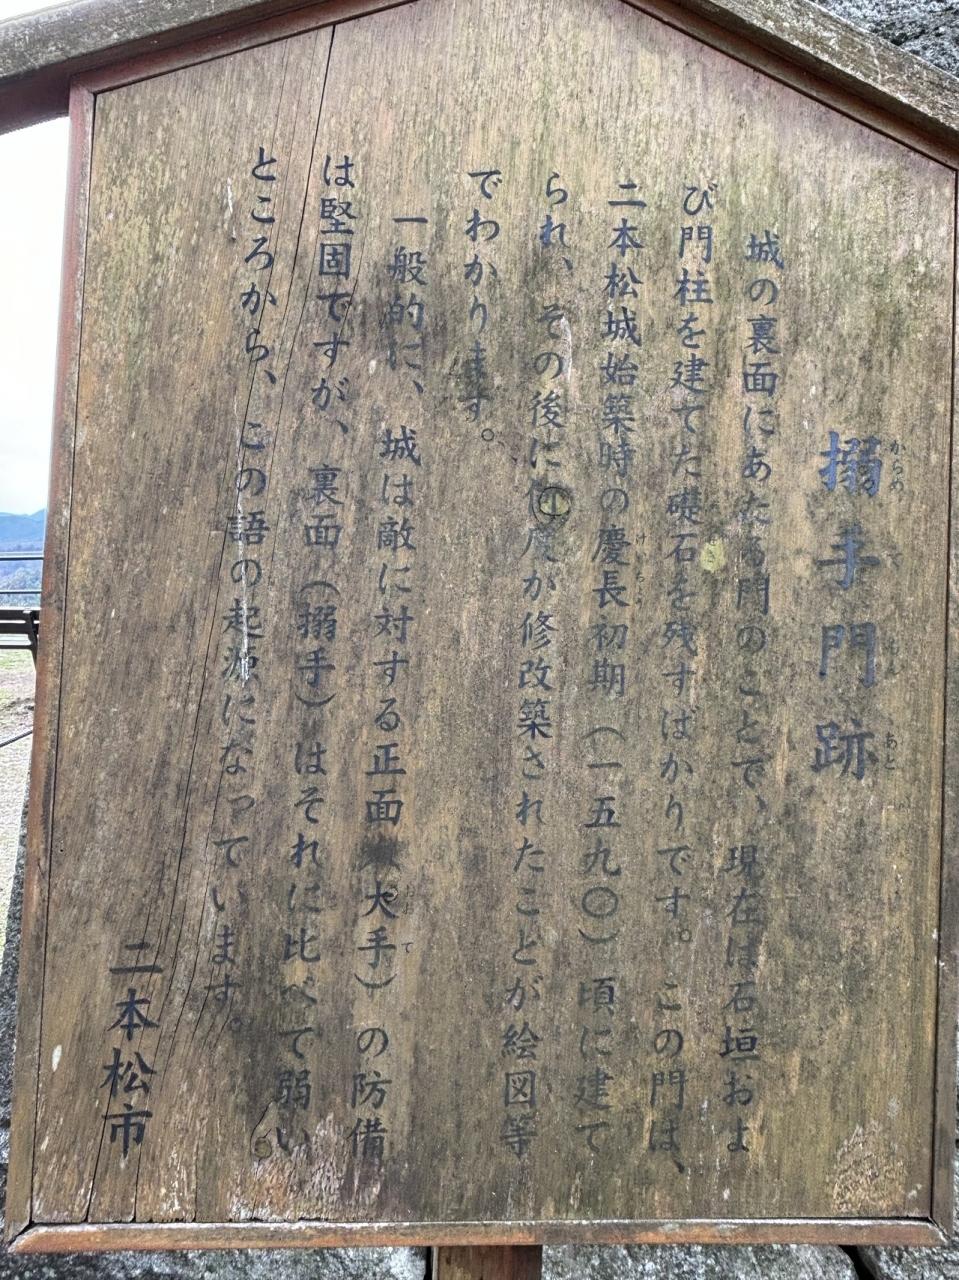 搦手門跡
城の裏面にあたる門のことで、現在は石垣およ
び門柱を建てた礎石を残すばかりです。この門は、
二本松城始築時の慶長初期（一五九〇）頃に建て
られ、その後に何度か修改築されたことが絵図等
でわかります。
一般的に、城は敵に対する正面（大手）の防備
は堅固ですが、裏面（搦手）はそれに比べて弱い
ところから、この語の起源になっています。
二本松市